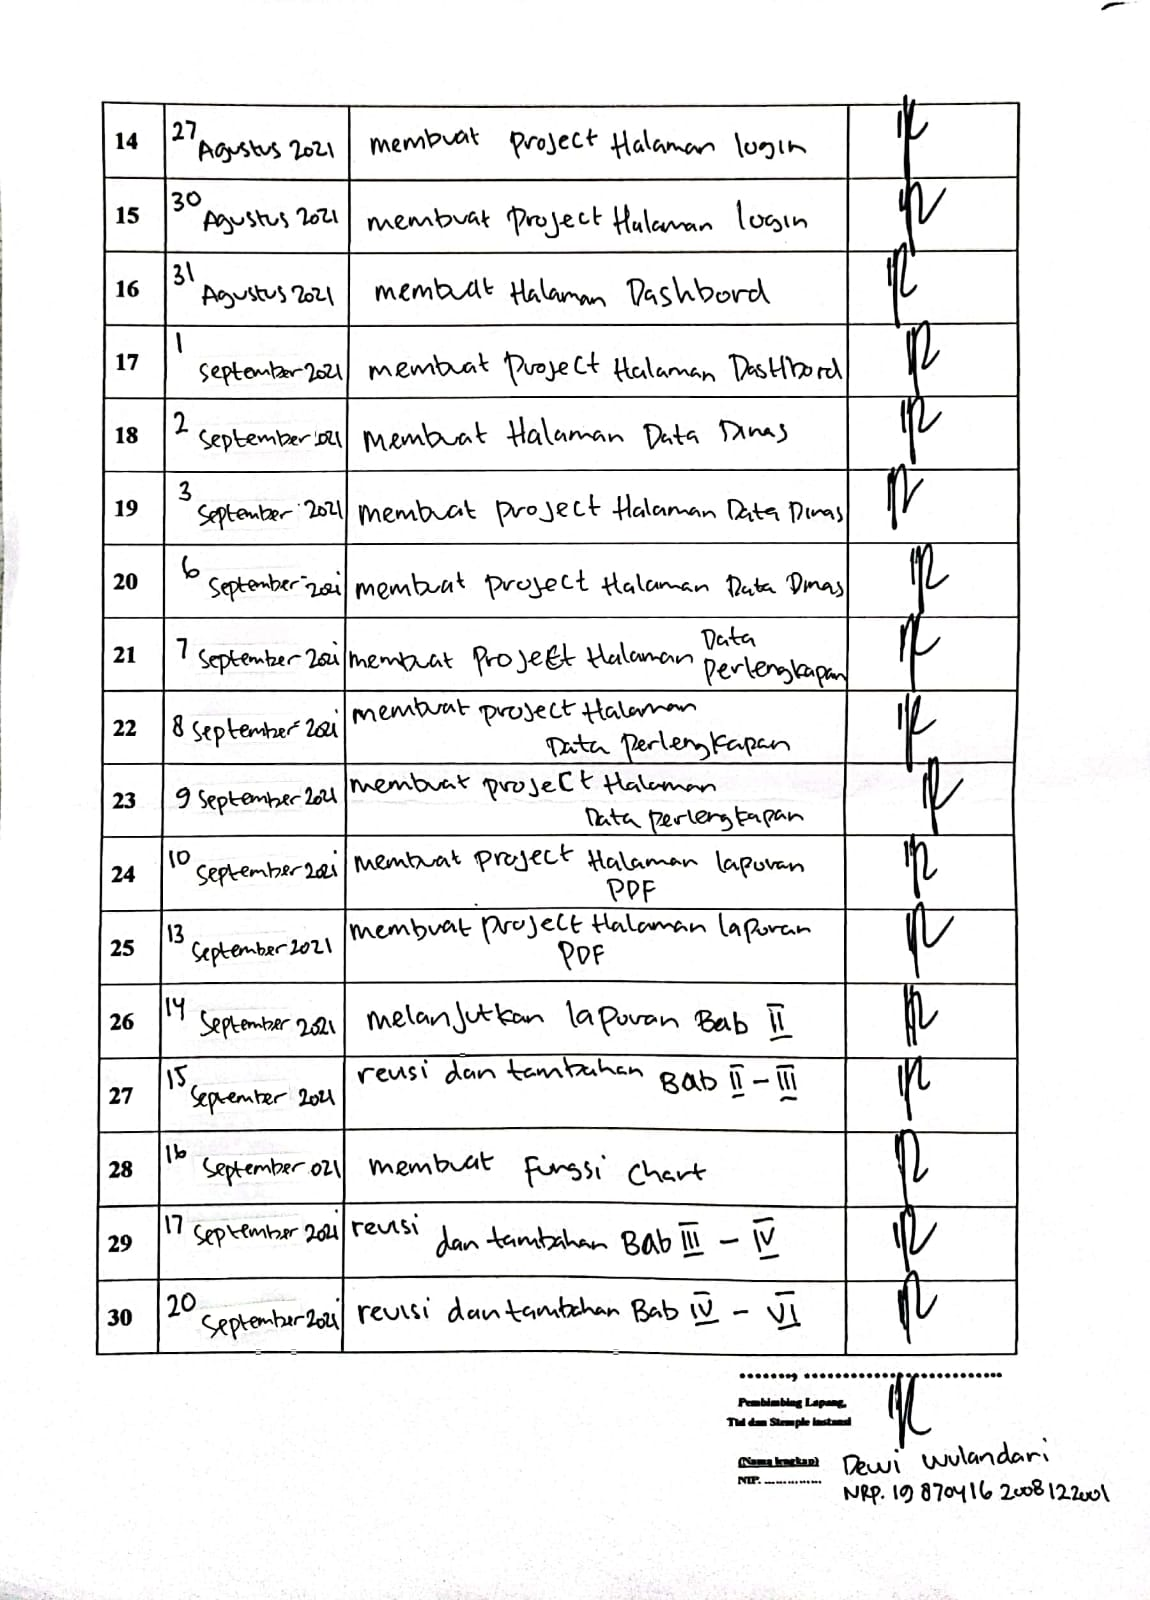 14 27 Agustus 2021 membuat project Halaman login
15 30 Agustus 2021 membuat project Halaman login
16 31 Agustus 2021 membuat Halaman Dashbord
17 1 September 2021 membuat project Halaman Dashbord
18 2 September 021 membuat Halaman Data Dinas
19 3 September 2021 membuat project Halaman Data Dinas
20 6 September 2021 membuat project Halaman Data Dinas
21 7 September 2021 membuat project Halaman Data
Perlengkapan
22 8 September 2021 membuat project Halaman
Data Perlengkapan
23 9 September 2021 membuat project Halaman
Data perlengkapan
24 10 September 2021 membuat project Halaman laporan
PDF
25 13 September 2021 membuat project Halaman laporan
PDF
26 14 September 2021 melanjutkan laporan Bab II
27 15 September 2021 revisi dan tambahan Bab II - III
28 16 September 021 membuat fungsi chart
29 17 September 2021 revisi
dan tambahan Bab III - IV
30 20 September 2021 revisi dan tambahan Bab IV - VI
Pembimbing Lapang,
Ttd dan Stemple Instansi
(Nama lengkap) Dewi Wulandari
NIP. .............. NRP. 19870416 2008122001